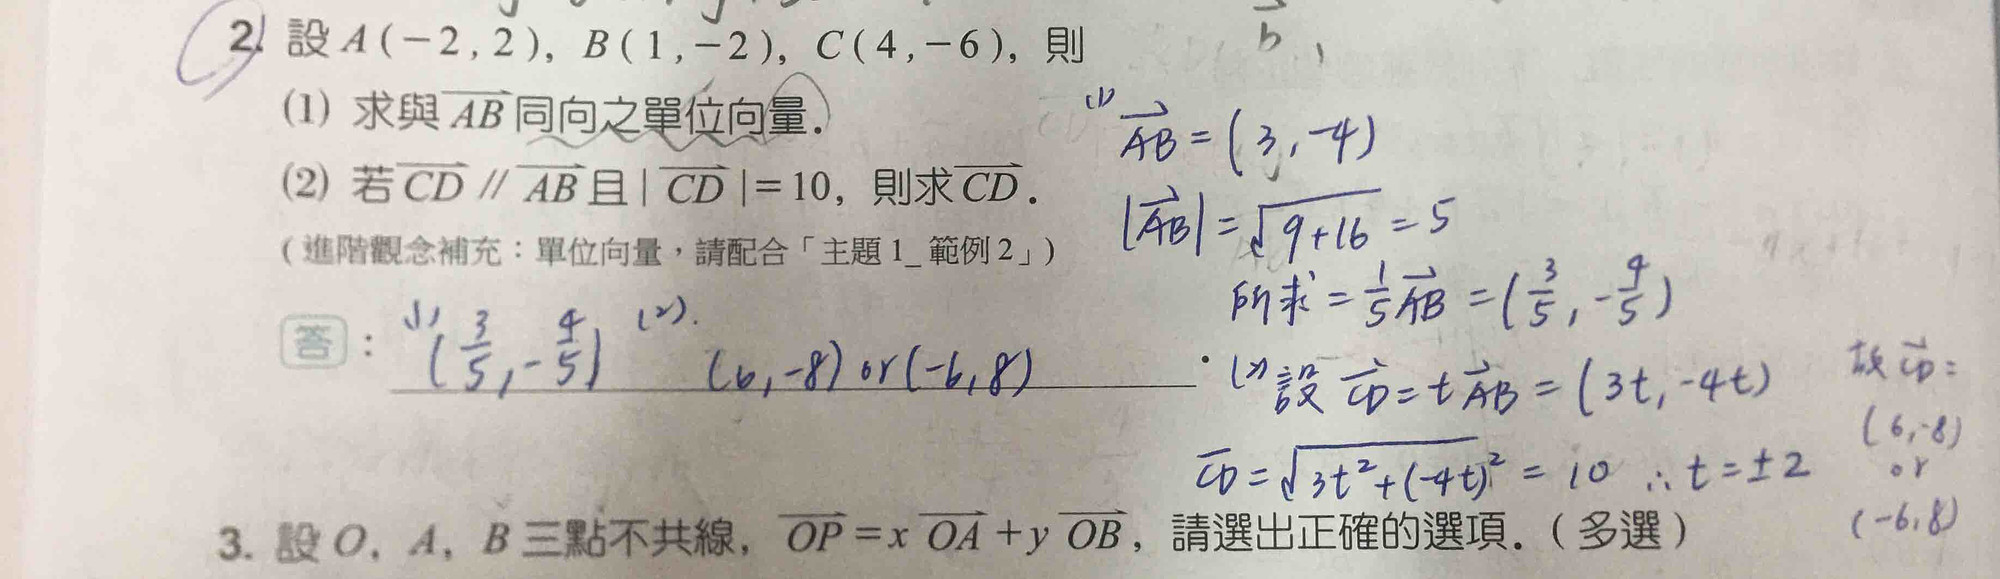 b
2. 設 A(−2,2), B(1,−2), C(4,−6), 則
(1) 求與 AB 同向之單位向量.
(2) 若 CD // AB 且 | CD | = 10, 則求 CD.
(進階觀念補充：單位向量，請配合「主題1_範例2」)
答：(1) (3/5, -4/5) (2). (6,-8) or (-6,8)
(1) AB = (3, -4)
|AB| = √9+16 = 5
所求 = 1/5 AB = (3/5, -4/5)
(2) 設 CD = t AB = (3t, -4t)
CD = √3t²+(-4t)² = 10 ∴ t = ±2
故 CD =
(6,-8)
or
(-6,8)
3. 設 O, A, B 三點不共線, OP = x OA + y OB, 請選出正確的選項.(多選)